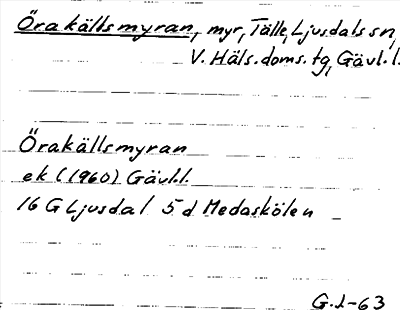 Örakällsmyran, myr, Tälle, Ljusdals sn,
V. Häls. doms. tg, Gävl. l.
Örakällsmyran
ek (1960) Gävl.l.
16 G Ljusdal 5 d Medaskölen
G.J-63